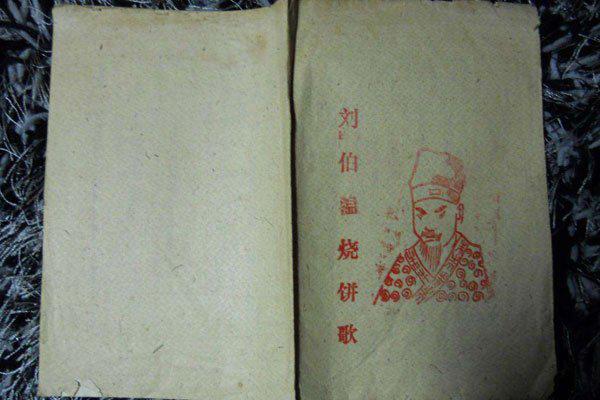 刘伯温烧饼歌